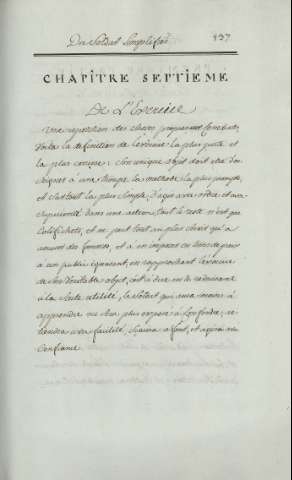 Du Soldat Simplifié
137
CHAPÎTRE SEPTIEME
De L'Exercice
Une répetition des choses
Voila la definition de l'exercice la plus juste et
la plus concise: Son unique objet doit etre d'en-
seigner à une troupe, la methode la plus prompte,
et Surtout la plus Simple, d'agir avec ordre et
dans une action, tout le reste n'est que
Colifichets, et ne peut tout au plus Servir qu'à
amuser des femmes, et à en imposer
à un public ignorant, en rapprochant l'exercice
de Son Veritable objet, c'est à dire en le ramenant
à la Seule utilité, le Soldat qui aura moins à
apprendre Sera plus exposé à Confondre,
avec facilité, Saura à fond, et agira en
Confiance.